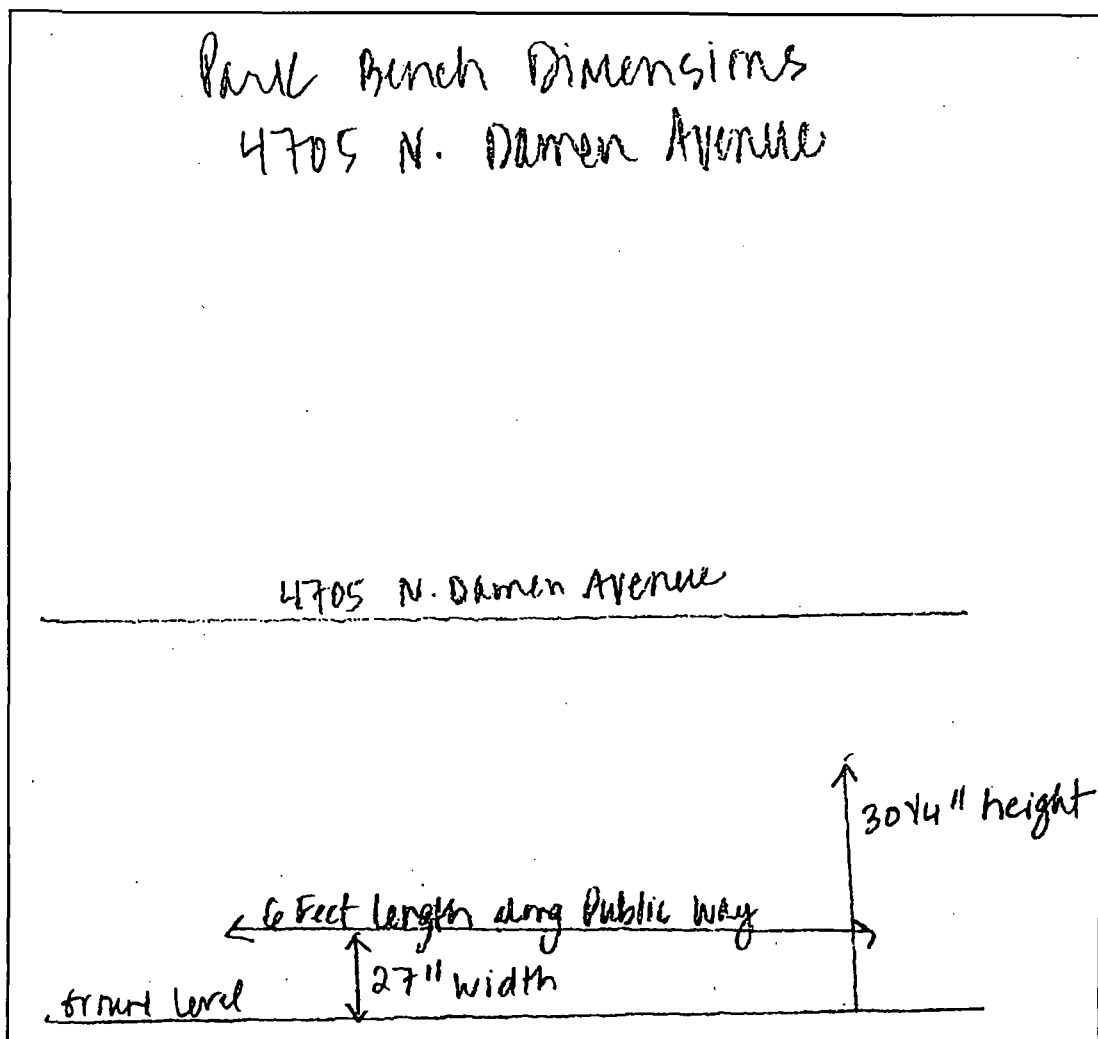 Park Bench Dimensions
4705 N. Damen Avenue
4705 N. Damen Avenue
30 1/4" height
6 Feet length along Public Way
27" width
Ground Level